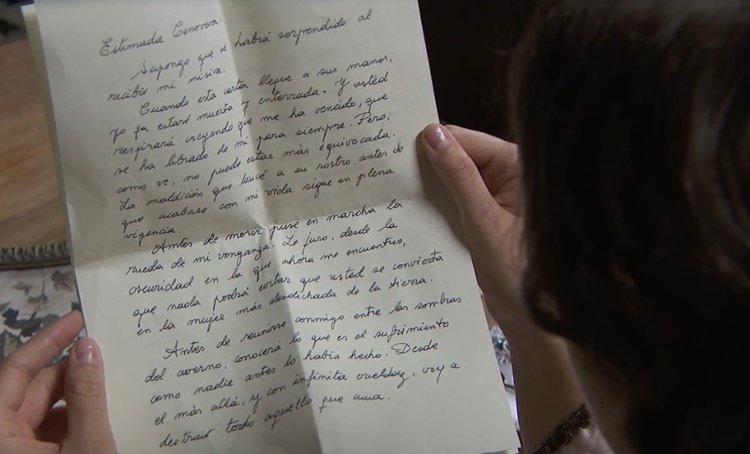 Estimada Genoveva
Supongo que se habrá sorprendido al
recibir mi misiva.
Cuando esta carta llegue a sus manos,
yo ya estaré muerta y enterrada. Y usted
respirará creyendo que me ha vencido, que
se ha librado de mí para siempre. Pero,
como ve, no puede estar más equivocada.
La maldición que lancé a su rostro antes de
que acabase con mi vida sigue en plena
vigencia.
Antes de morir puse en marcha la
rueda de mi venganza. Le juro, desde la
oscuridad en la que ahora me encuentro,
que nada podrá evitar que usted se convierta
en la mujer más desdichada de la tierra.
Antes de reunirse conmigo entre las sombras
del averno, conocerá lo que es el sufrimiento
como nadie antes lo había hecho. Desde
el más allá, y con infinita crueldad, voy a
destruir todo aquello que ama.